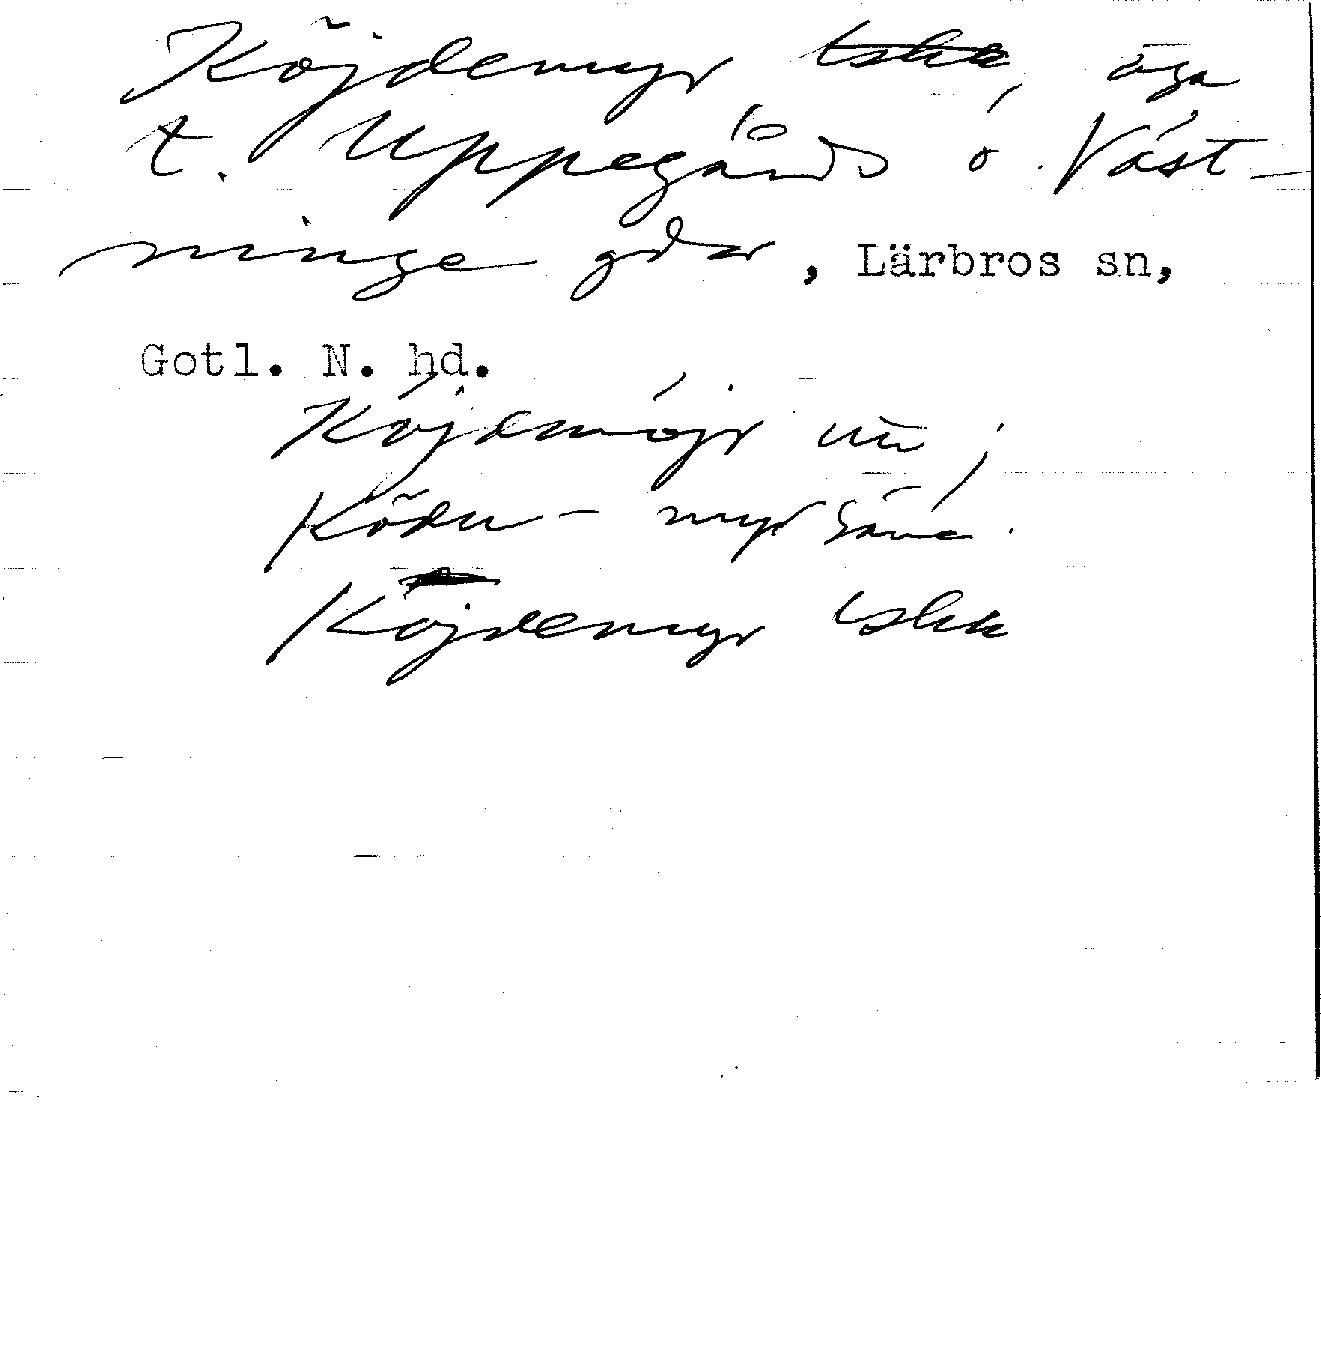 Köjdemyr tskk, äga
t. Uppegårds o Väst-
ninge gdar, Lärbros sn,
Gotl. N. hd.
Köjdmöjr
Ködu- myr Säve.
Köjdemyr tskk